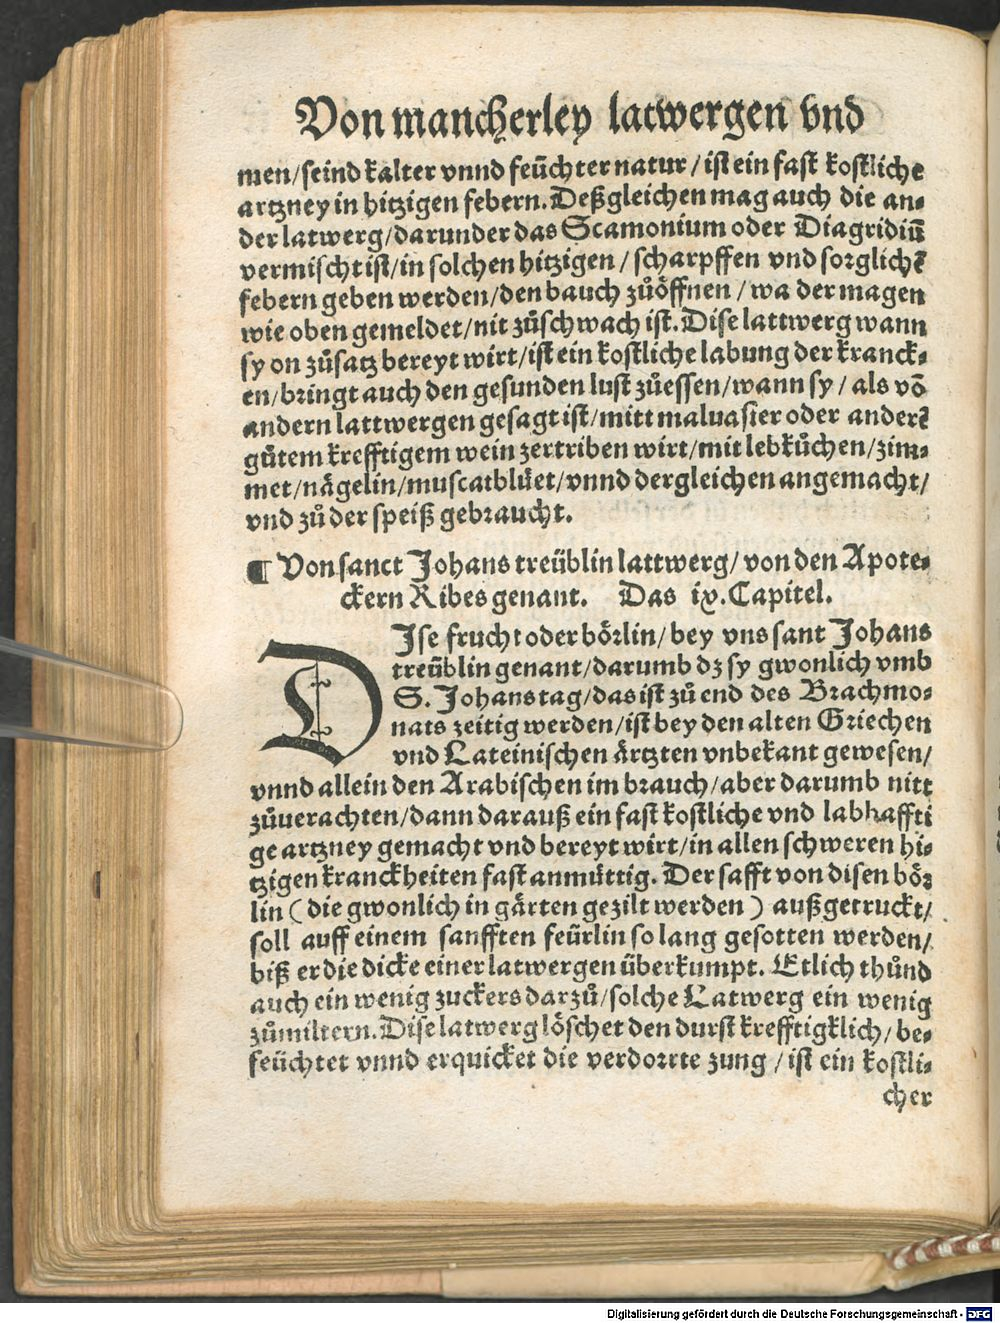 Von mancherley latwergen vnd
men/seind kalter vnnd feüchter natur/ist ein fast kostliche
artzney in hitzigen febern. Deßgleichen mag auch die an⸗
der latwerg/darunder das Scamonium oder Diagridiū
vermischt ist/in solchen hitzigen/scharpffen vnd sorglichē
febern geben werden/den bauch zůöffnen/wa der magen
wie oben gemeldet/nit zůschwach ist. Dise lattwerg wann
sy on zůsatz bereyt wirt/ist ein kostliche labung der kranck⸗
en/bringt auch den gesunden lust zůessen/wann sy/als vō
andern lattwergen gesagt ist/mitt maluasier oder anderē
gůtem krefftigem wein zertriben wirt/mit lebkůchen/zim⸗
met/nägelin/muscatblüet/vnnd dergleichen angemacht/
vnd zů der speiß gebraucht.
¶ Von sanct Johans treüblin lattwerg/von den Apote⸗
ckern Ribes genant. Das ix. Capitel.
DIse frucht oder börlin/bey vns sant Johans
treüblin genant/darumb dz sy gwonlich vmb
S. Johans tag/das ist zů end des Brachmo⸗
nats zeitig werden/ist bey den alten Griechen
vnd Lateinischen ärtzten vnbekant gewesen/
vnnd allein den Arabischen im brauch/aber darumb nitt
zůuerachten/dann darauß ein fast kostliche vnd labhaffti
ge artzney gemacht vnd bereyt wirt/in allen schweren hi⸗
tzigen kranckheiten fast anmüttig. Der safft von disen bör
lin (die gwonlich in gärten gezilt werden) außgetruckt/
soll auff einem sanfften feürlin so lang gesotten werden/
biß er die dicke einer latwergen überkumpt. Etlich thůnd
auch ein wenig zuckers darzů/solche Latwerg ein wenig
zůmiltern. Dise latwerg löschet den durst krefftigklich/be⸗
feüchtet vnnd erquicket die verdorrte zung/ist ein kostli⸗
cher
Digitalisierung gefördert durch die Deutsche Forschungsgemeinschaft - DFG